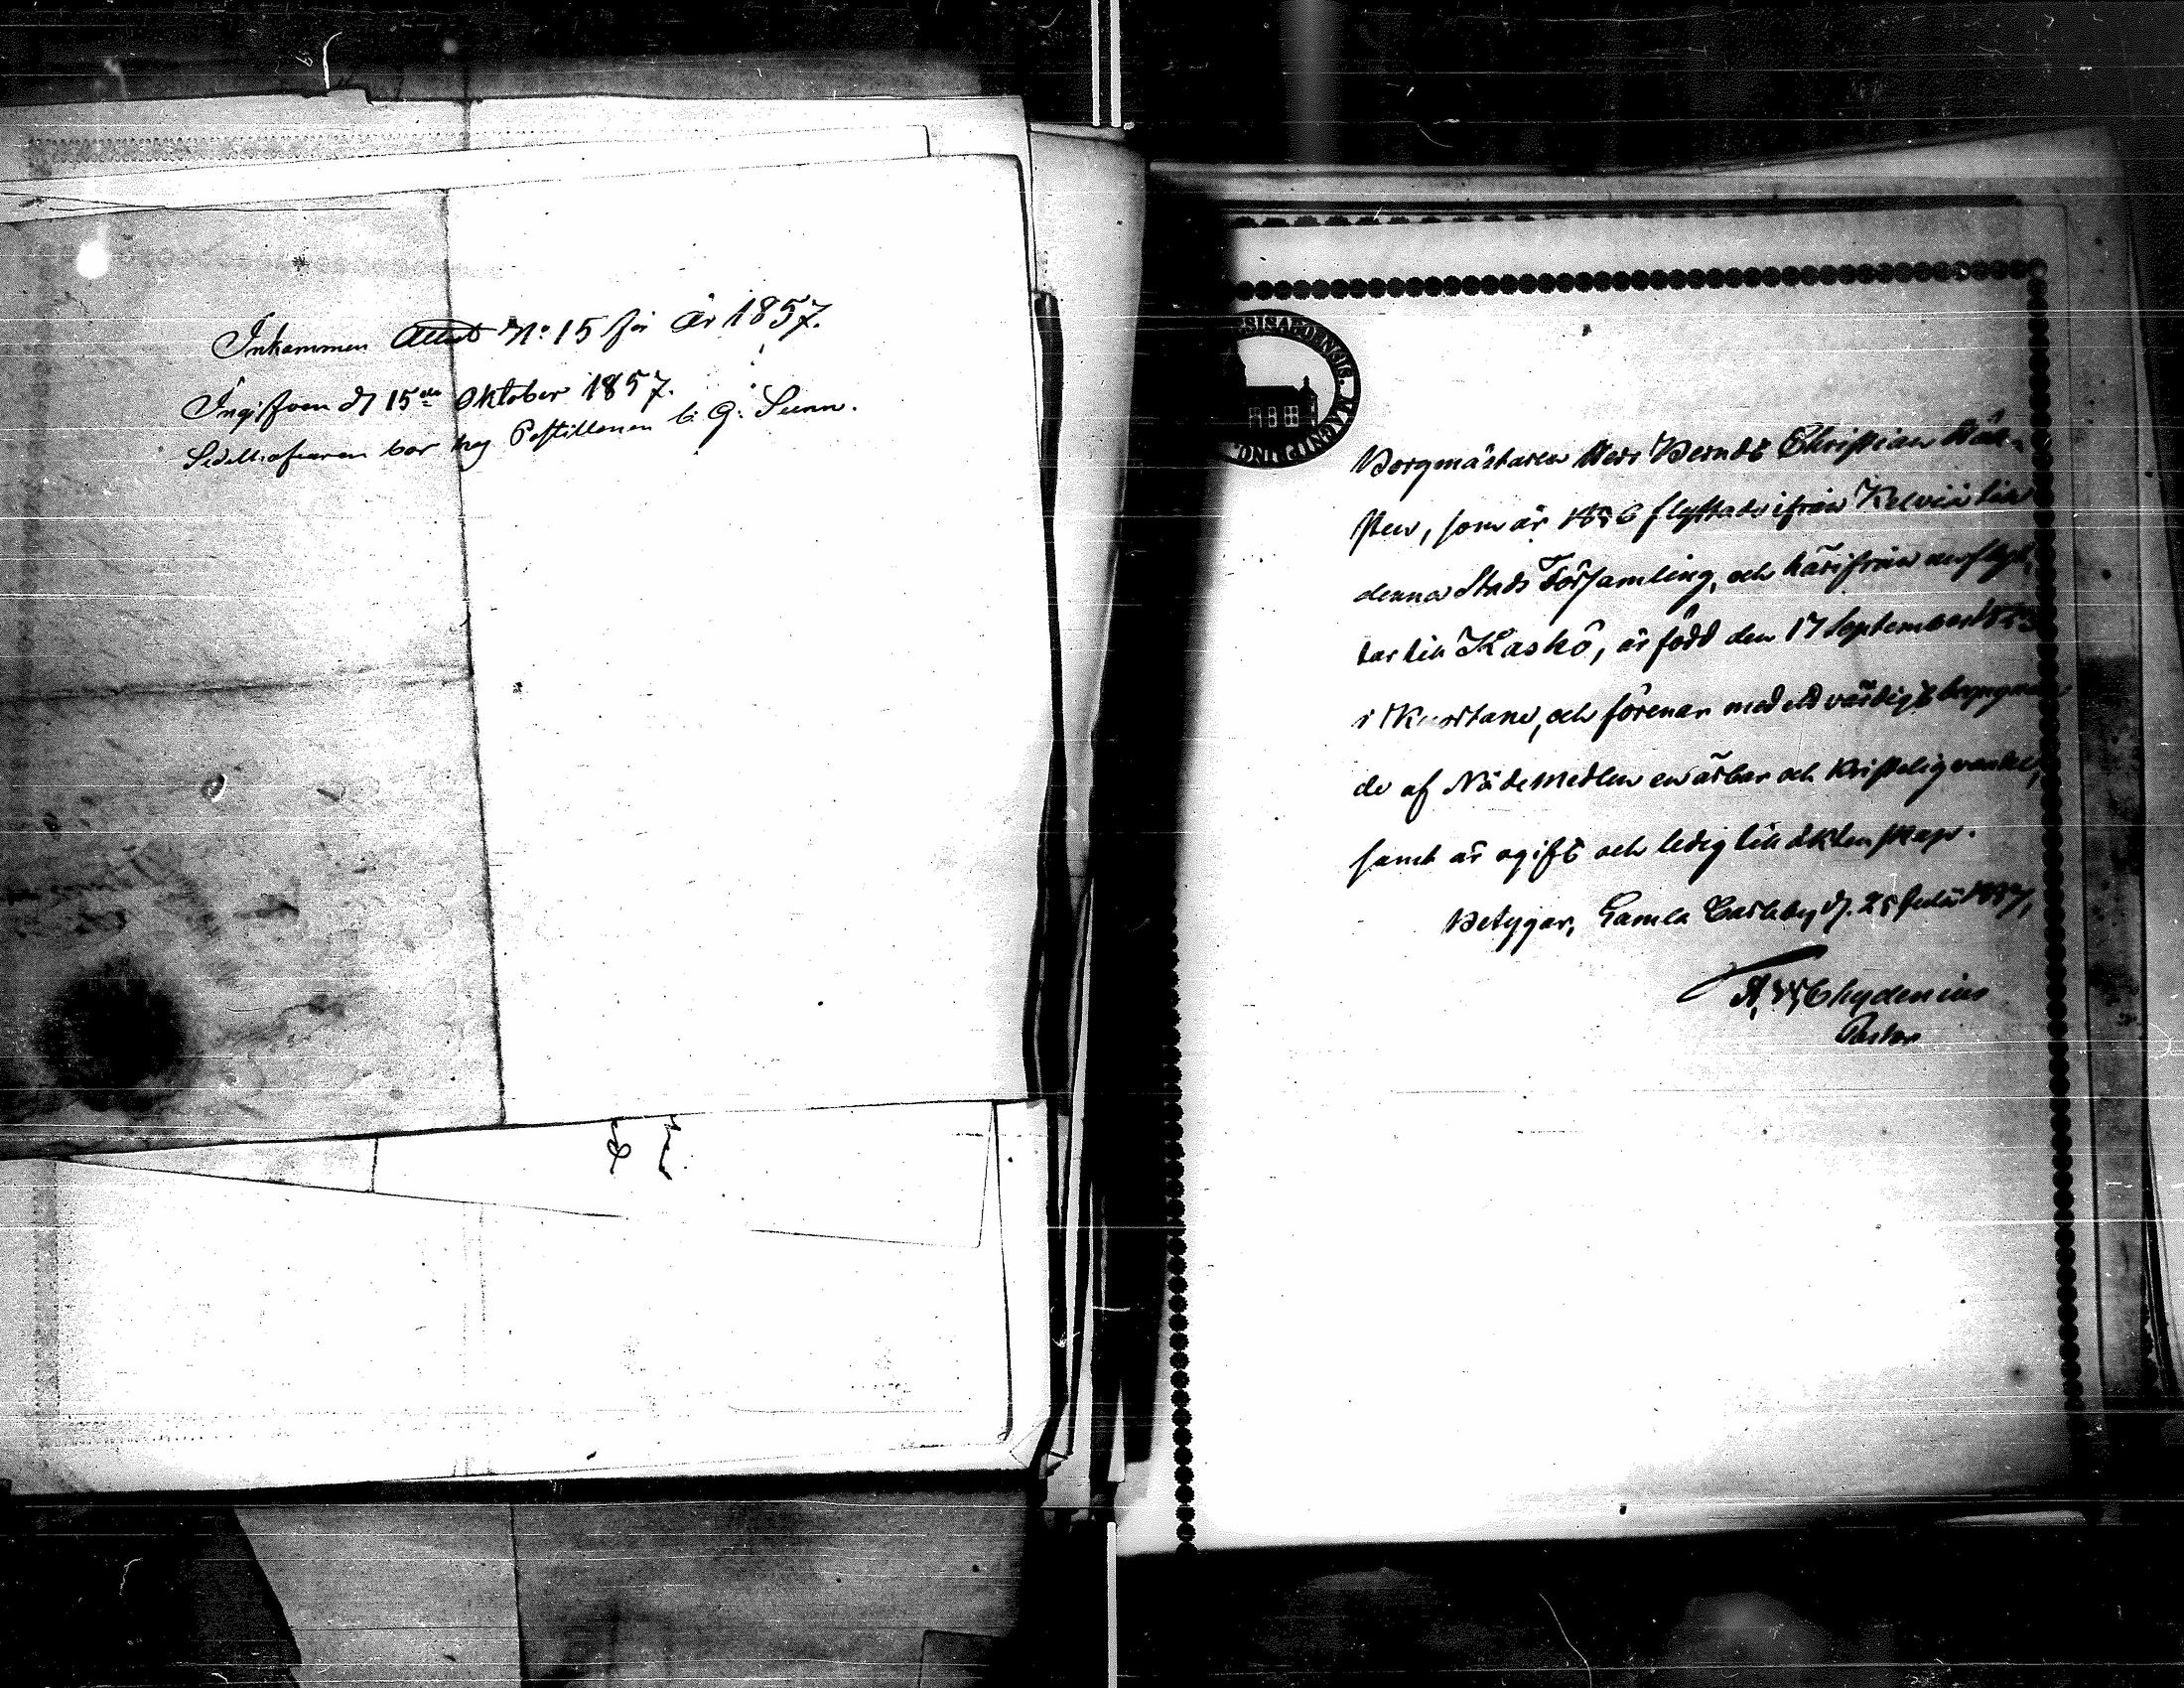 Inkommen Attest No: 15 för år 1857.
Ingifven d. 15de Oktober 1857.
bor hos Postillonen C. G. Sunn.
SISABOENSIS. MAGNI PRINC
Borgmästaren Herr Berndt Christian
sten, som år 1856 flyttade ifrån Kelviå till
denna Stads Församling, och härifrån
tar till Kaskö, är född den 17 September
i Kuortane, och förenar med ett värdigt begagnan-
de af Nådemedlen en ärbar och kristelig vandel,
samt är ogift och ledig till äktenskap.
Betygar, Gamla Carleby d. 25 Julii 1857,
A. W. Chydenius
Pastor